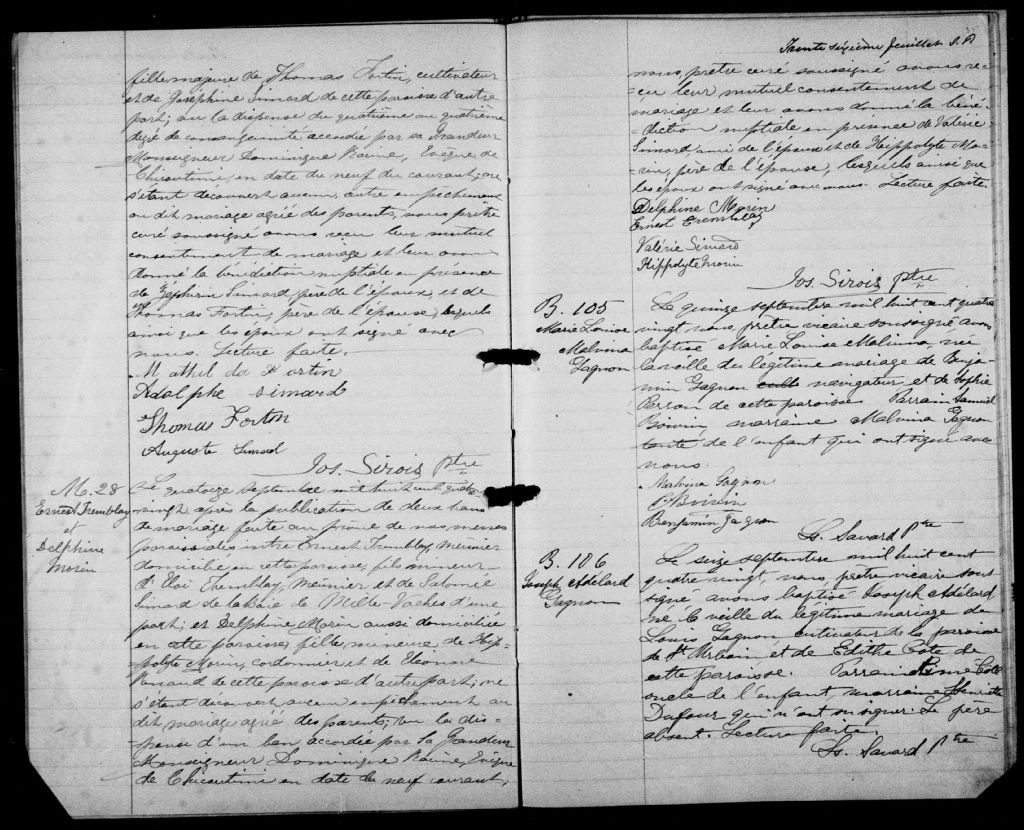 fille majeure de Thomas Fortin, cultivateur
et de Joséphine Simard de cette paroisse d'autre
part; vu la dispense du quatrième au quatrième
degré de consanguinité accordée par sa Grandeur
Monseigneur Dominique Racine, Evêque de
Chicoutimi, en date du neuf du courant; ne
s'étant découvert aucun autre empêchement
au dit mariage agréé des parents, nous prêtre
curé soussigné avons reçu leur mutuel
consentement de mariage et leur avons
donné la bénédiction nuptiale en présence
de Zéphirin Simard, père de l'époux, et de
Thomas Fortin, père de l'épouse, lesquels
ainsi que les époux ont signé avec
nous. Lecture faite.
Mathilda Fortin
Adolphe Simard
Thomas Forton
Auguste Simard
Jos. Sirois Ptre
M. 28
Ernest Tremblay
et
Delphine
Morin
Le quatorze septembre mil huit cent quatre
vingt après la publication de deux bans
de mariage faite au prône de nos messes
paroissiales entre Ernest Tremblay, meunier
domicilié en cette paroisse, fils mineur
d'Eloi Tremblay, Meunier, et de Salomée
Simard de la baie de Mille-Vaches d'une
part; et Delphine Morin aussi domiciliée
en cette paroisse, fille mineure de Hip-
polyte Morin, cordonnier et de Eléonore
Renaud de cette paroisse d'autre part; ne
s'étant découvert aucun empêchement au
dit mariage agréé des parents; vu la dis-
pense d'un ban accordée par Sa Grandeur
Monseigneur Dominique Racine, Evêque
de Chicoutimi en date du neuf courant;
Trente sixième feuillet
nous, prêtre curé soussigné avons re-
çu leur mutuel consentement de
mariage et leur avons donné la béné-
diction nuptiale en présence de Valérie
Simard ami de l'époux et de Hippolyte Mo-
rin, père de l'épouse, lesquels ainsi que
les époux ont signé avec nous. Lecture faite.
Delphine Morin
Ernest Tremblay
Valérie Simard
Hippolyte Morin
Jos. Sirois Ptre
B. 105
Marie Louise
Malvina
Gagnon
Le quinze septembre mil huit cent quatre
vingt nous, prêtre vicaire soussigné avons
baptisé Marie Louise Malvina, née
la veille du légitime mariage de Benja-
min Gagnon navigateur et de Sophie
Perron de cette paroisse Parrain Samuel
Boivin, marraine Malvina Gagnon
tante de l'enfant qui ont signé avec
nous.
Malvina Gagnon
Boivin
Benjamin Gagnon
Ls. Savard Ptre
B. 106
Joseph Adélard
Gagnon
Le seize septembre mil huit cent
quatre vingt, nous, prêtre vicaire sous-
signé avons baptisé Joseph Adélard
né la veille du légitime mariage de
Louis Gagnon cultivateur de la paroisse
de St Urbain et de Edithe Cote de
cette paroisse. Parrain Cote
oncle de l'enfant marraine Henriette
Dufour qui n'ont su signer. Le père
absent. Lecture faite
Ls. Savard Ptre